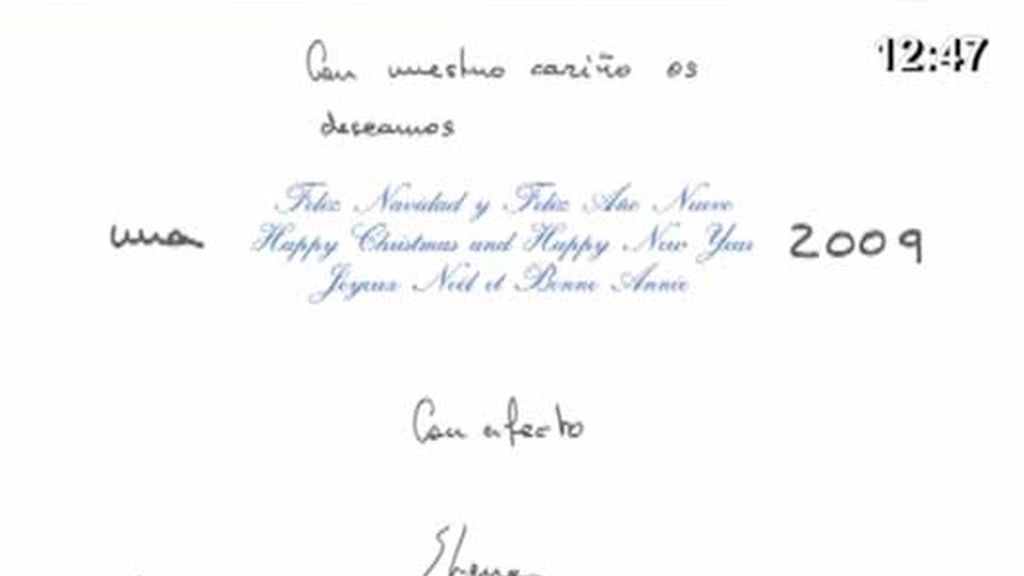 12:47
Con nuestro cariño os
deseamos
Feliz Navidad y Feliz Año Nuevo
una Happy Christmas and Happy New Year 2009
Joyeux Noël et Bonne Année
Con afecto